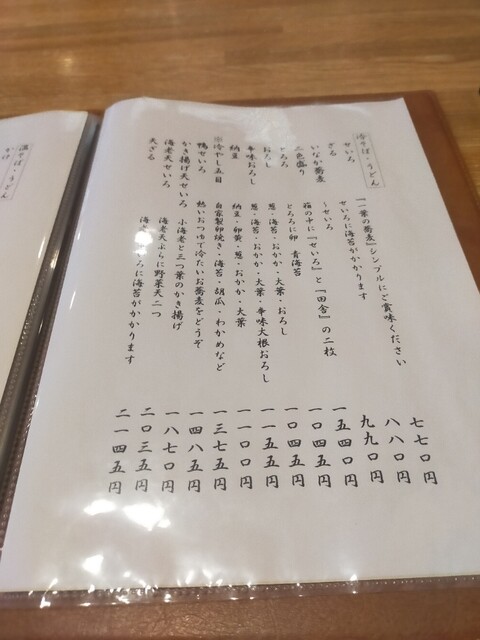 冷そば・うどん
せいろ 「一葉の蕎麦」シンプルにご賞味ください 七七〇円
ざる せいろに海苔がかかります 八八〇円
いなか蕎麦 〜せいろ 九九〇円
二色盛り 箱の中に『せいろ』と『田舎』の二枚 一五四〇円
とろろ とろろに卵 青海苔 一〇四五円
おろし 葱・海苔・おかか・大葉・おろし 一〇四五円
辛味おろし 葱・海苔・おかか・大葉・辛味大根おろし 一一五五円
納豆 納豆・卵黄・葱・おかか・大葉 一一〇〇円
冷やし五目 自家製卵焼き・海苔・胡瓜・わかめなど 一三七五円
鴨せいろ 熱いおつゆで冷たいお蕎麦をどうぞ 一四八五円
かき揚げ天せいろ 小海老と三つ葉のかき揚げ 一八七〇円
海老天せいろ 海老天ぷらに野菜天二つ 二〇三五円
天ざる いろに海苔がかかります 二一四五円
温そば・うどん
かけ